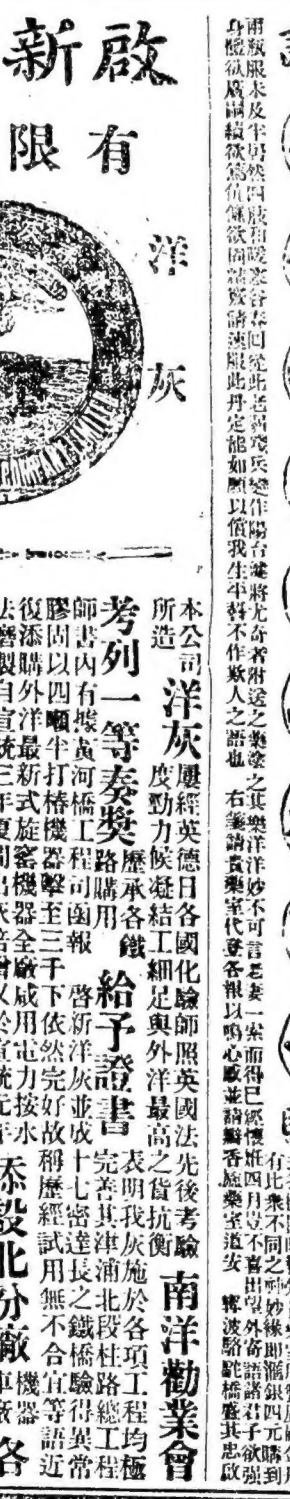 兩瓶服未及半居然四肢和暖寒谷春回從此老弱殘兵變作陽台健將尤奇者附送之藥塗之其樂洋洋妙不可言老妻一索而得已經懷姙四月豈不喜出望外寄語諸君子欲強
身體欲廣嗣續欲篤伉儷欲固請速服此丹定能如願以償我生平誓不作欺人之語也 右箋請貴藥室代登各報以鳴心感並請
藥室道安 寧波駱駝橋盛其忠啟
有比眾不同之神妙
即滙銀四元購到
啟新
有限
洋灰
本公司所造
洋灰
屢經英德日各國化驗師照英國法先後考驗
度勁力候凝結工細足與外洋最高之貨抗衡
南洋勸業會
考列一等奏獎
歷承各鐵路購用
給予證書
表明我灰施於各項工程均極
完善其津浦北段柱路總工程
師書內有據黃河橋工程司函報 啓新洋灰並成十七密達長之鐵橋驗得異常
膠固以四噸半打樁機器擊至三千下依然完好故稱歷經試用無不合宜等語近
復添購外洋最新式旋窰機器全廠咸用電力按水
法磨製自宣統三年夏間出灰倍增又於宣統元
添設北分廠
機器
車廠
各